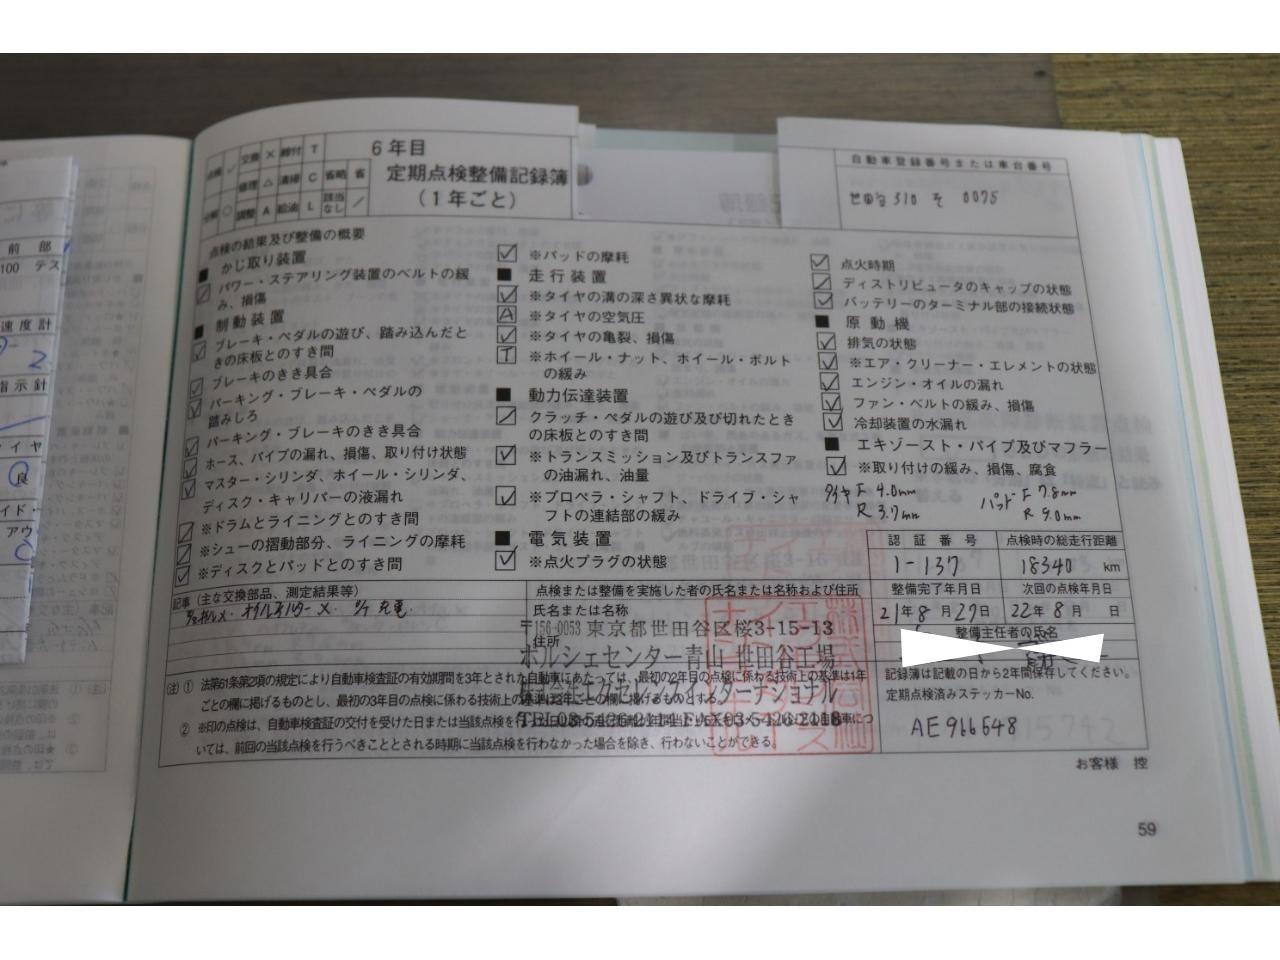 前部
100 テス
速度計
2
指示針
タイヤ
良
イド・
アウ
点検 ✓ 交換 × 締付 T
修理 △ 清掃 C 省略 省
分解 ○ 調整 A 給油 L 該当なし ／
6年目
定期点検整備記録簿
（1年ごと）
自動車登録番号または車台番号
世田谷 310 そ 0075
点検の結果及び整備の概要
■ かじ取り装置
パワー・ステアリング装置のベルトの緩
み、損傷
■ 制動装置
ブレーキ・ペダルの遊び、踏み込んだと
きの床板とのすき間
ブレーキのきき具合
パーキング・ブレーキ・ペダルの
踏みしろ
パーキング・ブレーキのきき具合
ホース、パイプの漏れ、損傷、取り付け状態
マスター・シリンダ、ホイール・シリンダ、
ディスク・キャリパーの液漏れ
※ドラムとライニングとのすき間
※シューの摺動部分、ライニングの摩耗
※ディスクとパッドとのすき間
※パッドの摩耗
■ 走行装置
※タイヤの溝の深さ異状な摩耗
A ※タイヤの空気圧
※タイヤの亀裂、損傷
T ※ホイール・ナット、ホイール・ボルト
の緩み
■ 動力伝達装置
クラッチ・ペダルの遊び及び切れたとき
の床板とのすき間
※トランスミッション及びトランスファ
の油漏れ、油量
※プロペラ・シャフト、ドライブ・シャ
フトの連結部の緩み
■ 電気装置
※点火プラグの状態
点火時期
ディストリビュータのキャップの状態
バッテリーのターミナル部の接続状態
■ 原動機
排気の状態
※エア・クリーナー・エレメントの状態
エンジン・オイルの漏れ
ファン・ベルトの緩み、損傷
冷却装置の水漏れ
■ エキゾースト・パイプ及びマフラー
※取り付けの緩み、損傷、腐食
タイヤ F 4.0mm パッド F 7.8mm
R 3.7mm R 9.0mm
認証番号 点検時の総走行距離
1-137 18340 km
整備完了年月日 次回の点検年月日
21年 8月 27日 22年 8月 日
整備主任者の氏名
記録簿は記載の日から2年間保存してください。
定期点検済みステッカーNo.
AE966648
記事（主な交換部品、測定結果等）
点検または整備を実施した者の氏名または名称および住所
氏名または名称
〒156-0053 東京都世田谷区桜3-15-13
住所
ポルシェセンター青山 世田谷工場
㊟ ① 法第61条第2項の規定により自動車検査証の有効期間を3年とされた自動車にあたっては、最初の2年目の点検に係わる技術上の基準は1年
ごとの欄に掲げるものとし、最初の3年目の点検に係わる技術上の基準は2年ごとの欄に掲げるものとする。
② ※印の点検は、自動車検査証の交付を受けた日または当該点検を行
いては、前回の当該点検を行うべきこととされる時期に当該点検を行わなかった場合を除き、行わないことができる。
お客様 控
59